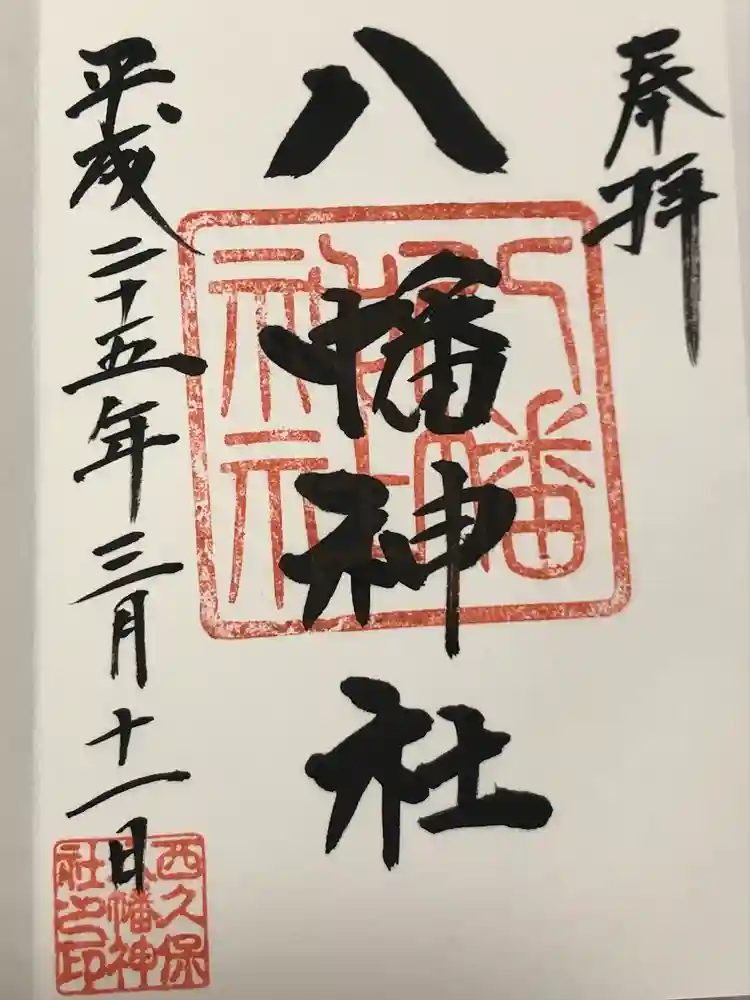 奉拝
八幡神社
平成二十五年三月十一日
八幡
神社
西久保
八幡神
社之印